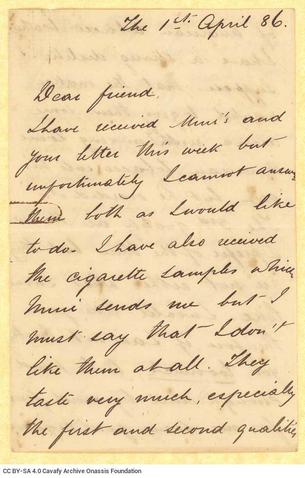 The 1st April 86.
Dear friend,
I have received Mimi's and
your letter this week but
unfortunately I cannot answer
them both as I would like
to do. I have also received
the cigarette samples which
Mimi sends me but I
must say that I don't
like them at all. They
taste very much, especially
the first and second qualities
CC BY-SA 4.0 Cavafy Archive Onassis Foundation